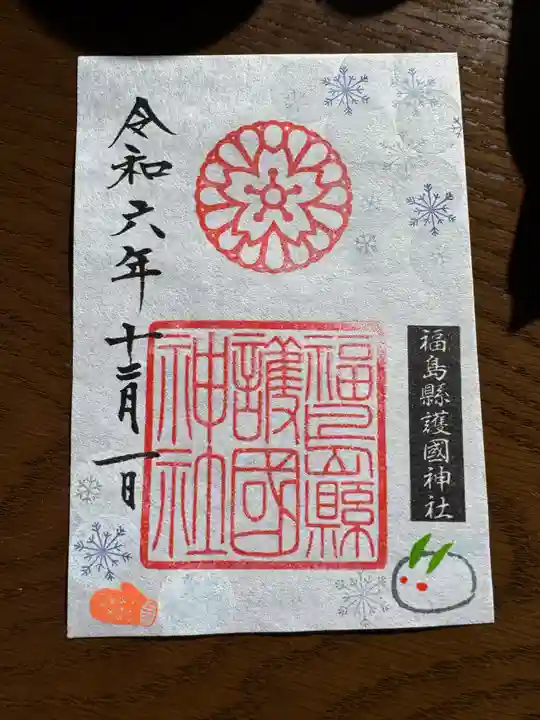 福島縣護國神社
福島縣
護國
神社
令和六年十二月一日